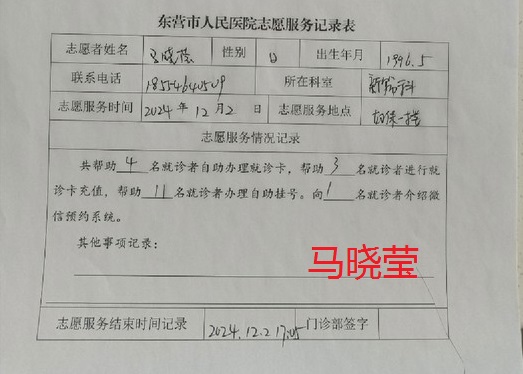 东营市人民医院志愿服务记录表
志愿者姓名 晓 性别 出生年月 1996.5
联系电话 所在科室 新 科
志愿服务时间 2024年12月2日 志愿服务地点 一楼
志愿服务情况记录
共帮助4名就诊者自助办理就诊卡，帮助3名就诊者进行就
诊卡充值，帮助11名就诊者办理自助挂号。向1名就诊者介绍微
信预约系统。
其他事项记录：
马晓莹
志愿服务结束时间记录 2024.12.2 17:05 门诊部签字